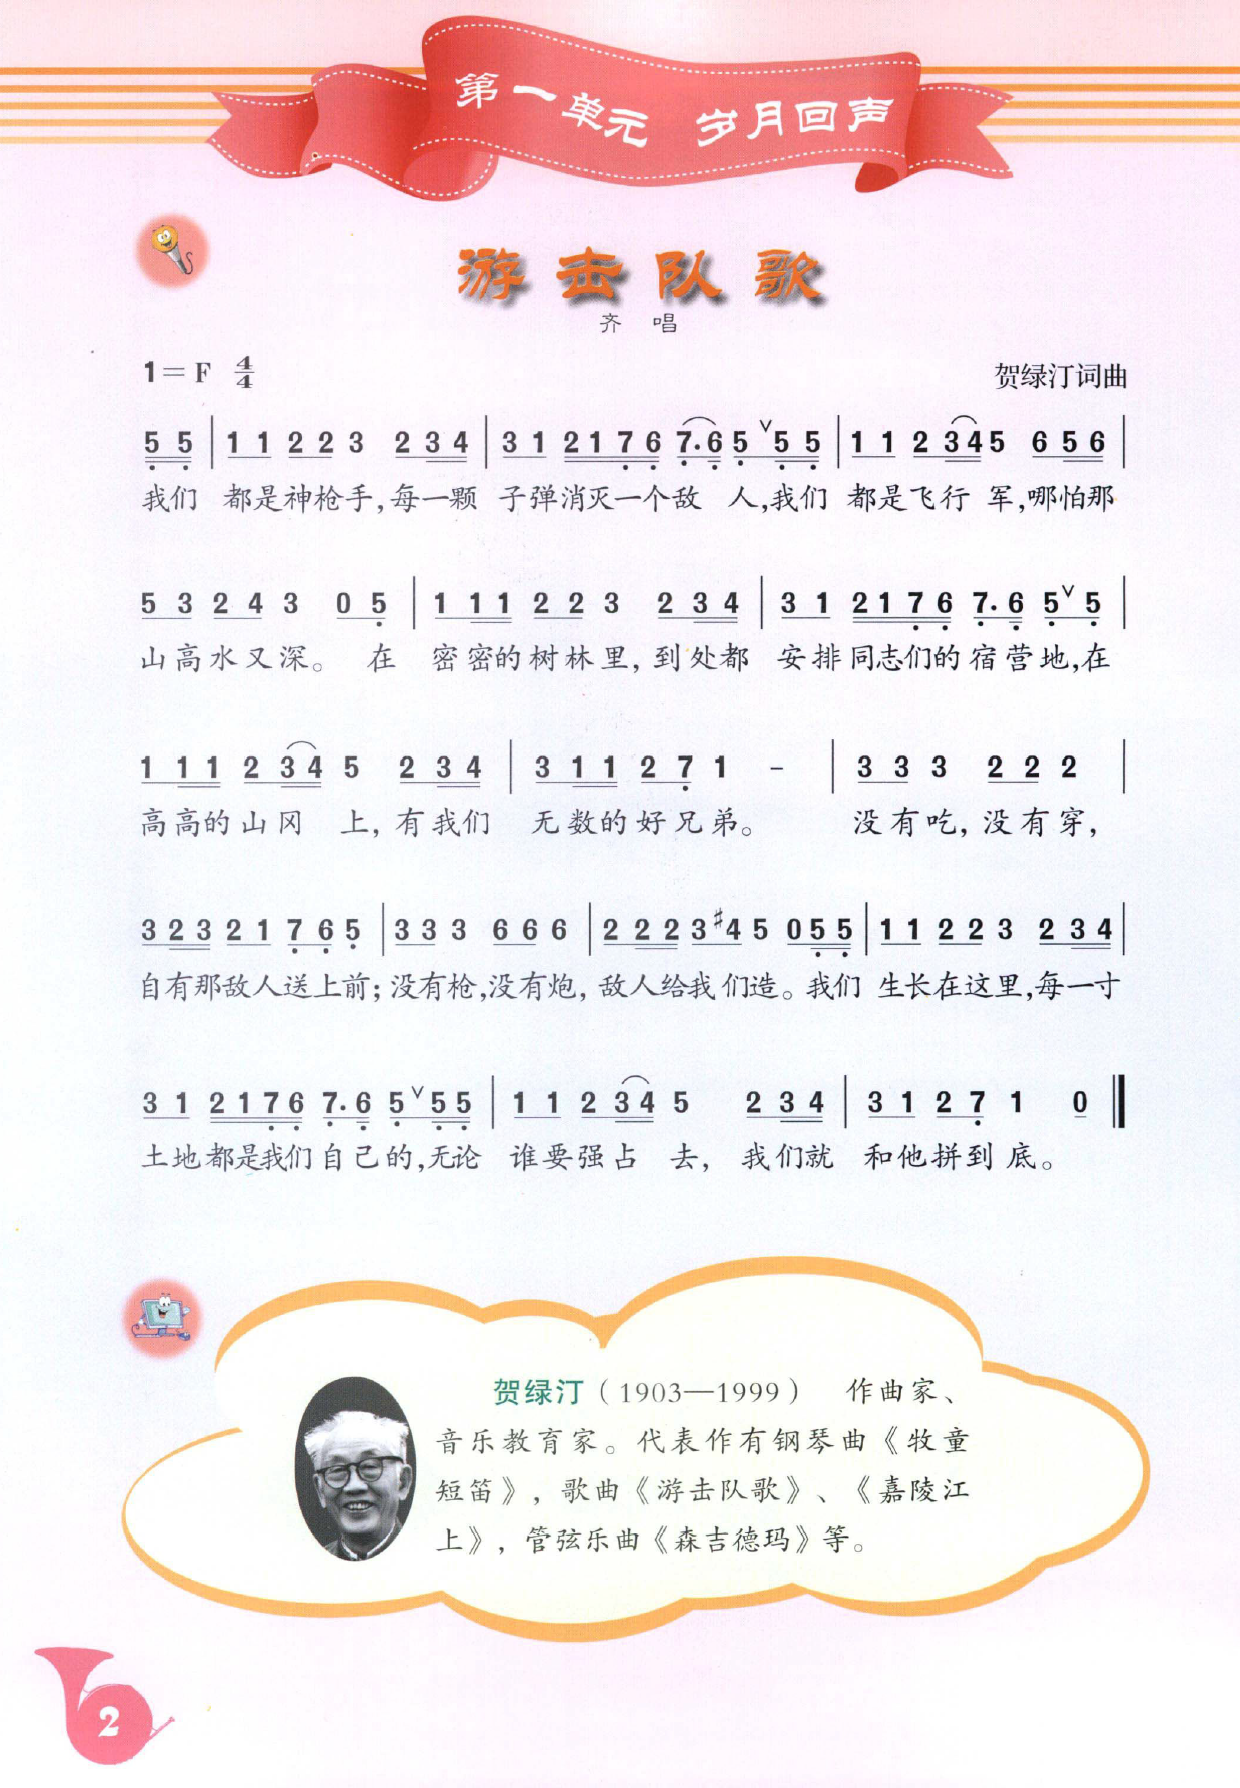 第一单元 岁月回声
游击队歌
齐 唱
1=F 4/4
贺绿汀词曲
5 5 | 1 1 2 2 3 2 3 4 | 3 1 2 1 7 6 7·6 5 ∨ 5 5 | 1 1 2 3 4 5 6 5 6 |
我们 都是神枪手,每一颗 子弹消灭一个敌 人,我们 都是飞行 军,哪怕那
5 3 2 4 3 0 5 | 1 1 1 2 2 3 2 3 4 | 3 1 2 1 7 6 7·6 5 ∨ 5 |
山高水又深。 在 密密的树林里,到处都 安排同志们的宿营地,在
1 1 1 2 3 4 5 2 3 4 | 3 1 1 2 7 1 - | 3 3 3 2 2 2 |
高高的山冈 上,有我们 无数的好兄弟。 没有吃,没有穿,
3 2 3 2 1 7 6 5 | 3 3 3 6 6 6 | 2 2 2 3 #4 5 0 5 5 | 1 1 2 2 3 2 3 4 |
自有那敌人送上前;没有枪,没有炮,敌人给我们造。我们 生长在这里,每一寸
3 1 2 1 7 6 7·6 5 ∨ 5 5 | 1 1 2 3 4 5 2 3 4 | 3 1 2 7 1 0 ‖
土地都是我们自己的,无论 谁要强占 去, 我们就 和他拼到底。
贺绿汀(1903—1999) 作曲家、
音乐教育家。代表作有钢琴曲《牧童
短笛》,歌曲《游击队歌》、《嘉陵江
上》,管弦乐曲《森吉德玛》等。
2